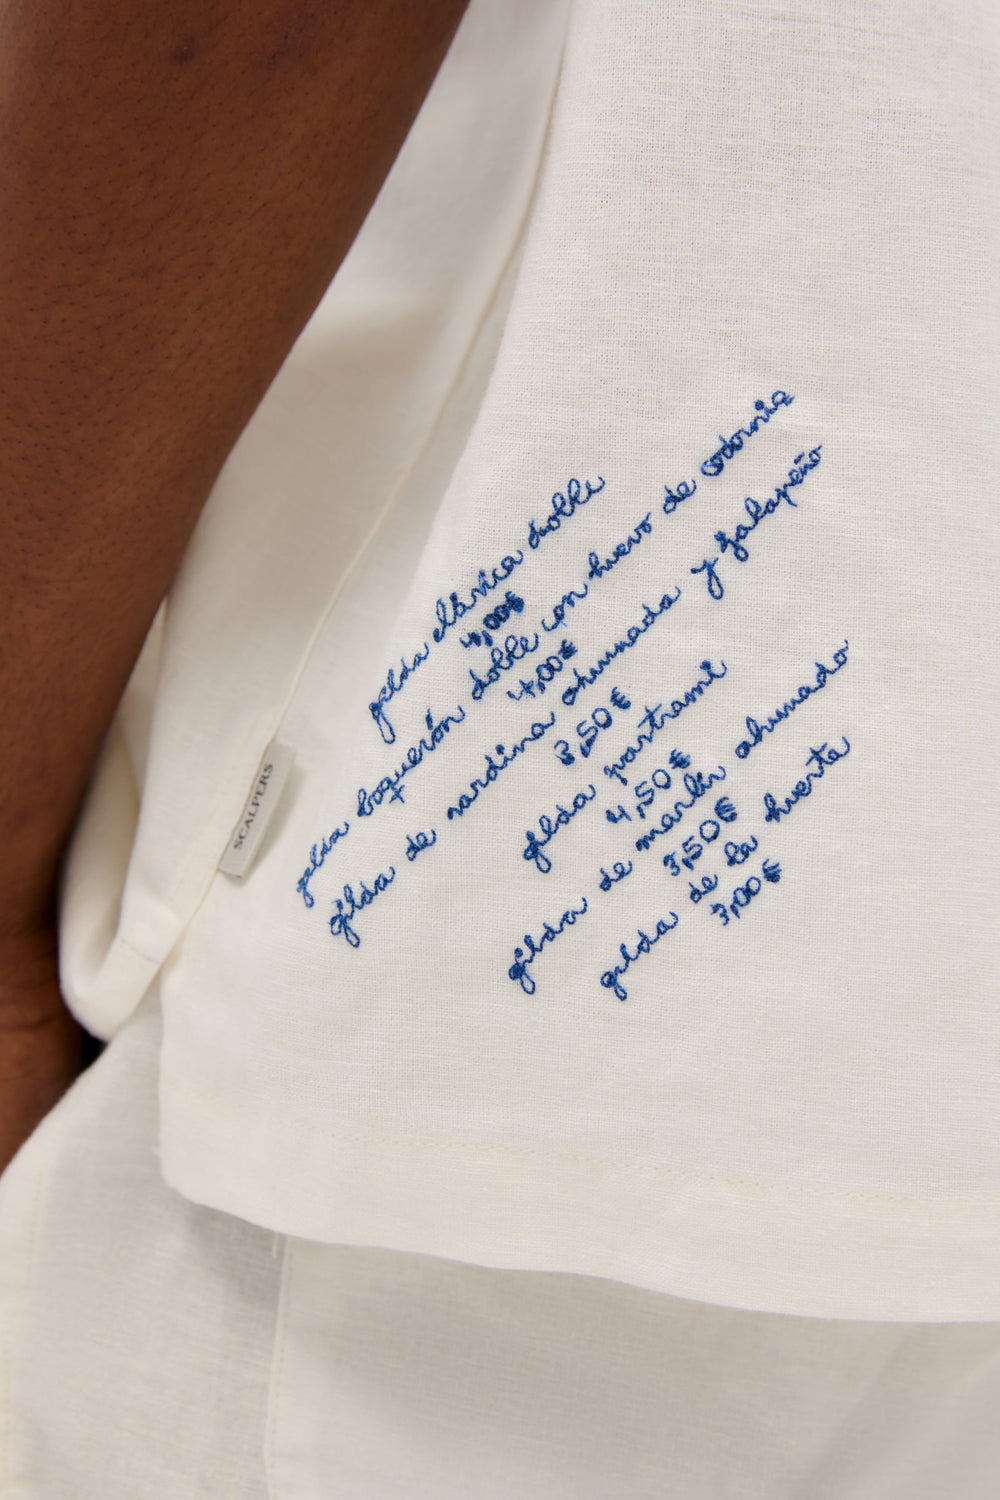 gilda clásica doble
4,00€
gilda boquerón doble con huevo de codorniz
4,00€
gilda de sardina ahumada y jalapeño
3,50€
gilda pastrami
4,50€
gilda de marlín ahumado
3,50€
gilda de la huerta
3,00€
SCALPERS